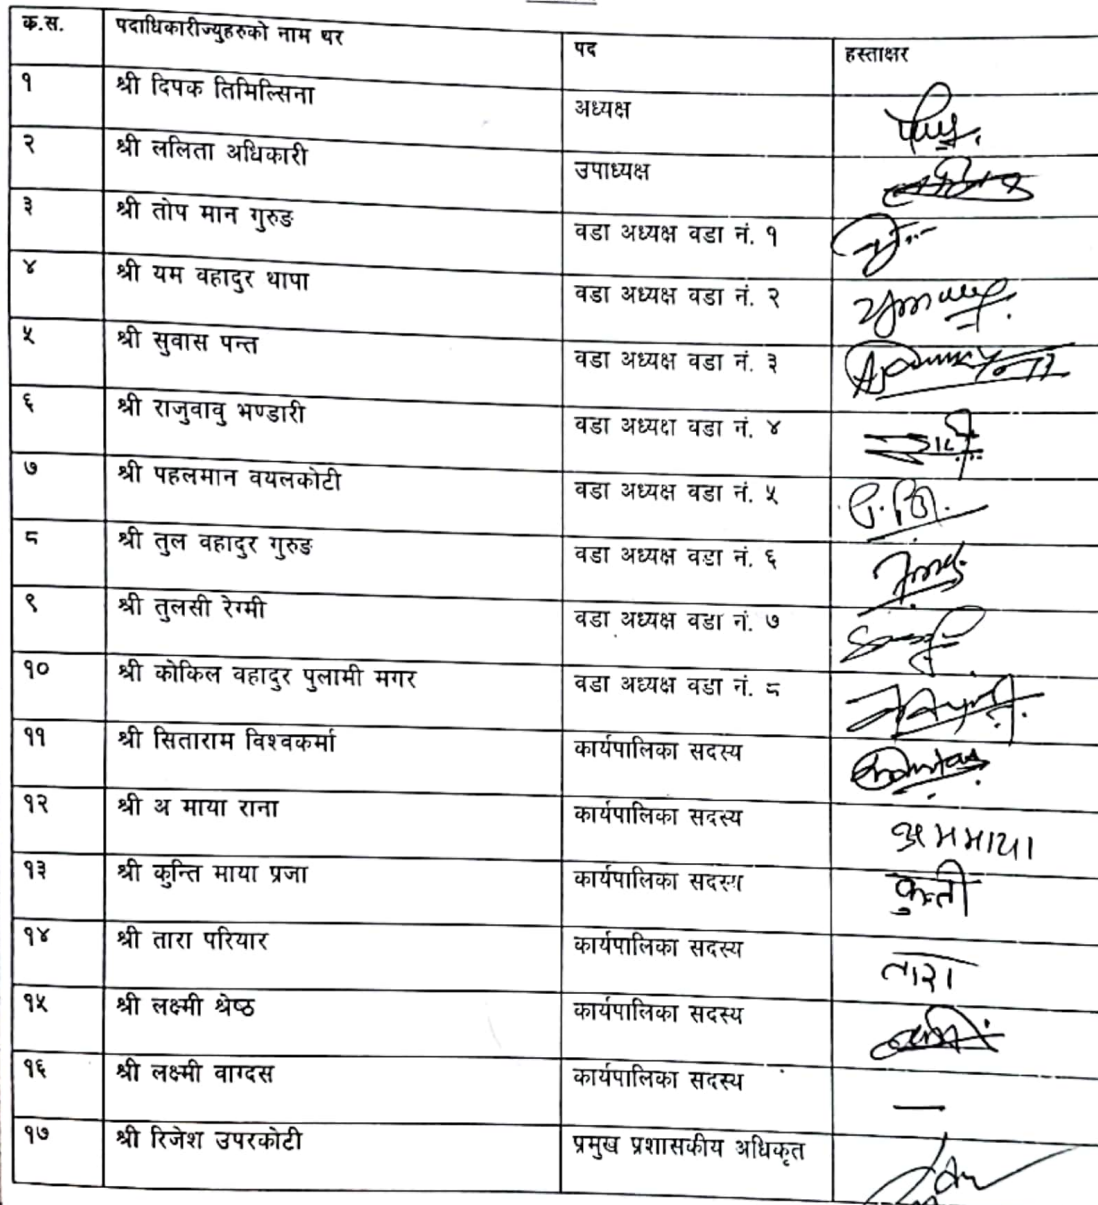 क.स. पदाधिकारीज्युहरुको नाम थर पद हस्ताक्षर
१ श्री दिपक तिमिल्सिना अध्यक्ष
२ श्री ललिता अधिकारी उपाध्यक्ष
३ श्री तोप मान गुरुङ वडा अध्यक्ष वडा नं. १
४ श्री यम वहादुर थापा वडा अध्यक्ष वडा नं. २
५ श्री सुवास पन्त वडा अध्यक्ष वडा नं. ३
६ श्री राजुवावु भण्डारी वडा अध्यक्ष वडा नं. ४
७ श्री पहलमान वयलकोटी वडा अध्यक्ष वडा नं. ५
८ श्री तुल वहादुर गुरुङ वडा अध्यक्ष वडा नं. ६
९ श्री तुलसी रेग्मी वडा अध्यक्ष वडा नं. ७
१० श्री कोकिल वहादुर पुलामी मगर वडा अध्यक्ष वडा नं. ८
११ श्री सिताराम विश्वकर्मा कार्यपालिका सदस्य
१२ श्री अ माया राना कार्यपालिका सदस्य अममाया
१३ श्री कुन्ति माया प्रजा कार्यपालिका सदस्य कुन्ती
१४ श्री तारा परियार कार्यपालिका सदस्य तारा
१५ श्री लक्ष्मी श्रेष्ठ कार्यपालिका सदस्य
१६ श्री लक्ष्मी वाग्दस कार्यपालिका सदस्य —
१७ श्री रिजेश उपरकोटी प्रमुख प्रशासकीय अधिकृत